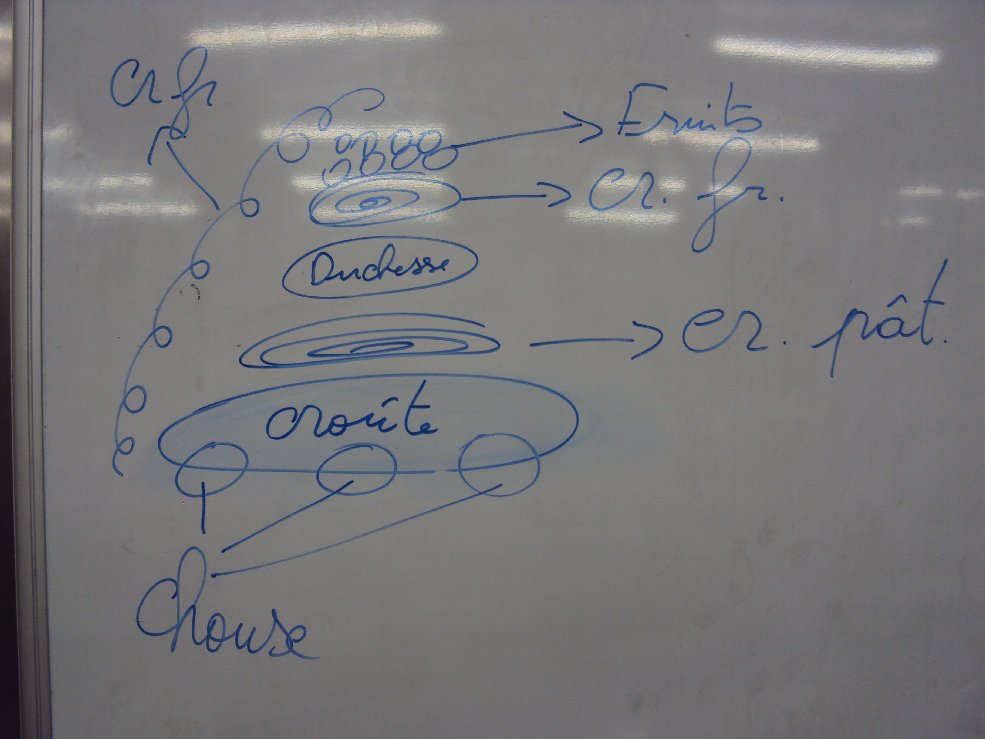 cr fr
Fruits
cr. fr.
Duchesse
cr. pât.
croûte
Chouse